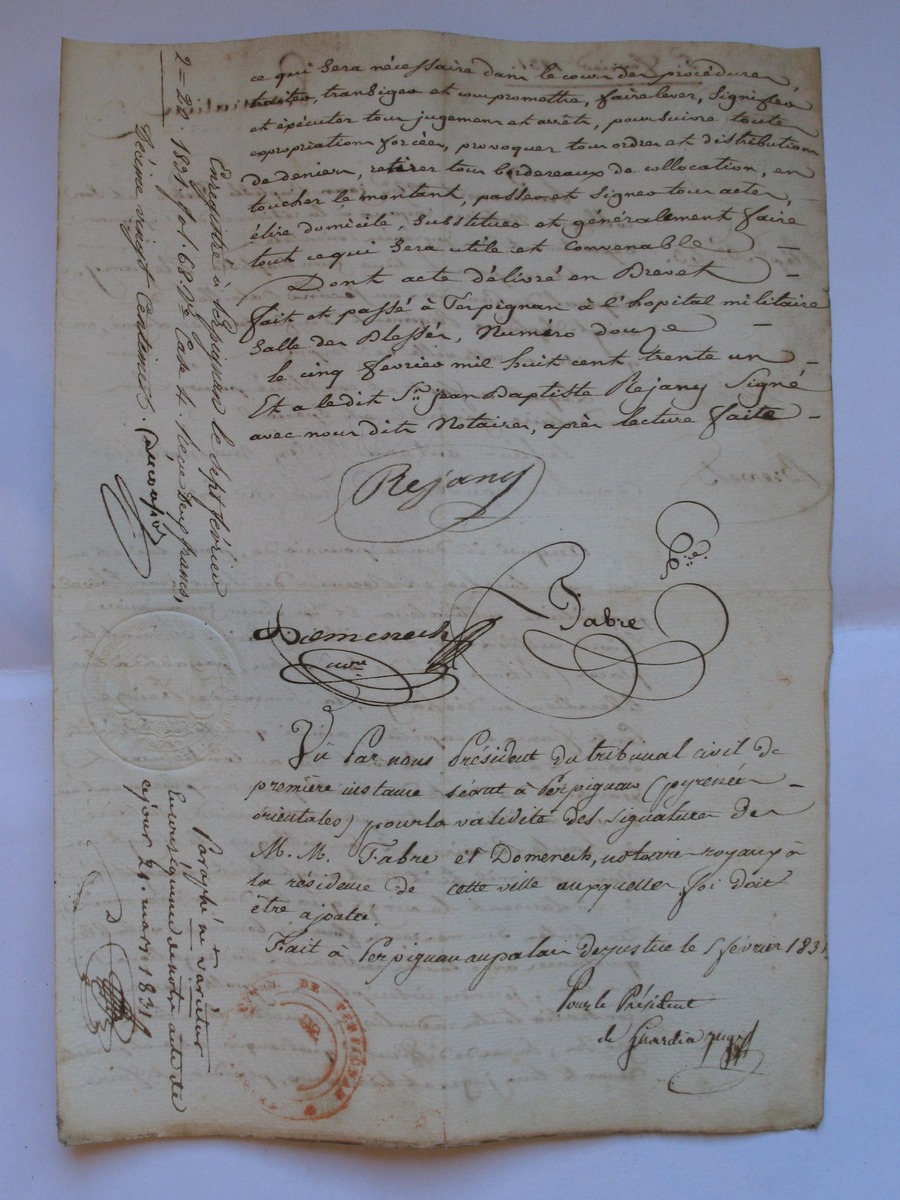 ce qui sera nécessaire dans le cour des procédures
traiter, transiger et compromettre, faire lever, signifier
et exécuter tous jugemens et arrêts, poursuivre toute
expropriation forcée, provoquer tous ordres et distribution
de deniers, retirer tous bordereaux de collocation, en
toucher le montant, passer et signer tous actes,
élire domicile, substituer et généralement faire
tout ce qui sera utile et convenable
Dont acte délivré en Brevet
fait et passé à Perpignan à l'hopital militaire
Salle des Blessés, Numéro douze
le cinq février mil huit cent trente un
Et a ledit Sr. Jean Baptiste Rejany Signé
avec nous dits Notaires, après lecture faite
Rejany
Domenech
Fabre
Vu Par nous Président du tribunal civil de
première instance séant à Perpignan (pyrenées
orientales) pour la validité des signatures des
M. M. Fabre et Domenech, notaires royaux à
la résidence de cette ville auxquelles foi doit
être ajoutée
Fait à Perpignan au palais de justice le 5 février 1831
Pour le Président
de Guardia juge
Enregistré à Perpignan le sept février
1831 fol. 68. Vo Case 4. Reçu deux francs,
Décime vingt Centimes.
Paraphé ne varietur
En conséquence de notre acte de
ce jour 21. mars 1831